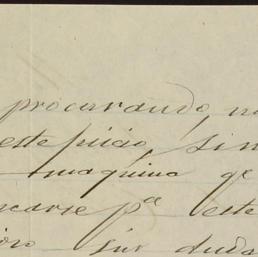 procurando, no
este juicio, sin
maquina qe
carse pa este
sin duda